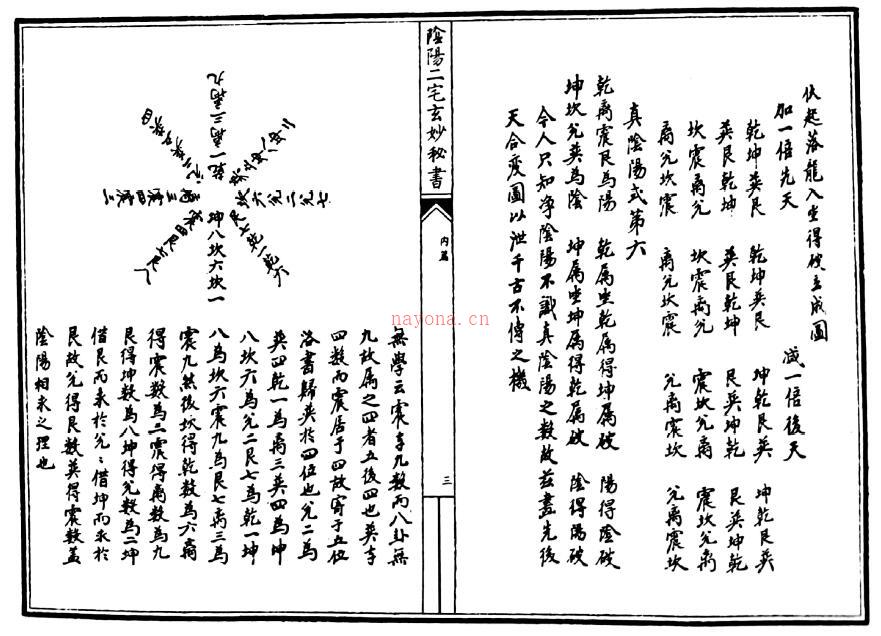 伏起落龍入坐得破立成圖
加一倍先天
減一倍後天
乾坤巽艮
乾坤巽艮
坤乾艮巽
坤乾艮巽
巽艮乾坤
巽艮乾坤
艮巽坤乾
艮巽坤乾
坎震离兌
坎震离兌
震坎兌离
震坎兌离
离兌坎震
离兌坎震
兌离震坎
兌离震坎
真陰陽式第六
乾离震艮為陽 乾屬坐乾屬得坤屬破 陽得陰破
坤坎兌巽為陰 坤屬坐坤屬得乾屬破 陰得陽破
今人只知净陰陽不識真陰陽之數故茲畫先後
天合變圖以泄千古不傳之機
陰陽二宅玄妙秘書
内篇
三
乾一离三离九
坎六兌二七
坤八坎六坎一
艮七乾一乾六
無學云震居九數而八卦無
九故屬之四者五後四也巽居
四數而震居于四故寄于五位
洛書歸巽於四位也兌二為
巽四乾一為离三巽四為坤
八坎六為兌二艮七為乾一坤
八為坎六震九為艮七离三為
震九然後坎得乾數為六离
得震數為二震得离數為九
艮得坤數為八坤得兌數為二坤
借艮而求於兌兌借坤而求於
艮故兌得艮數巽得震數蓋
陰陽相求之理也
nayona.cn